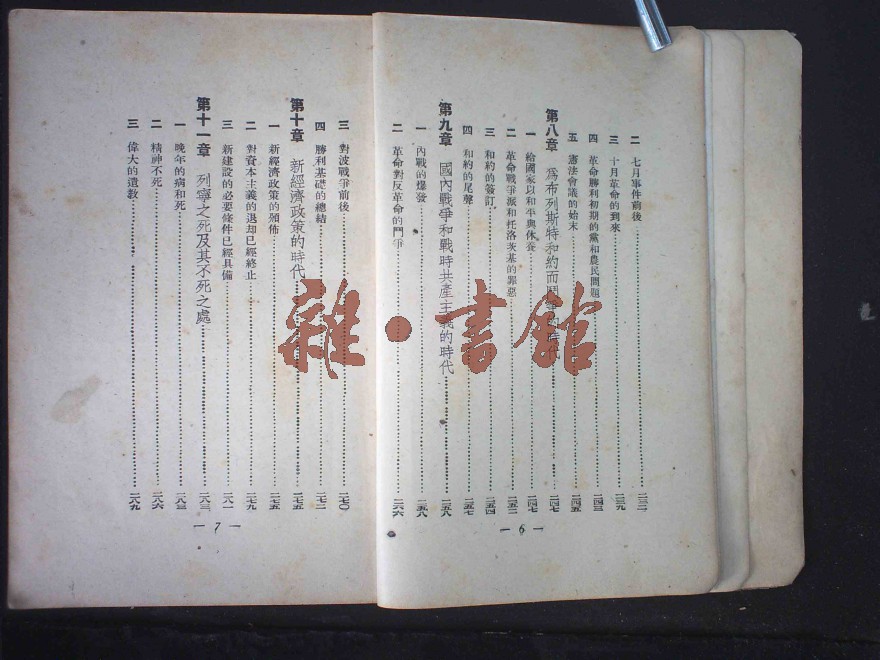 二 七月事件前後 二三二
三 十月革命的到來 二三九
四 革命勝利初期的黨和農民問題 二四三
五 憲法會議的始末 二四五
第八章 爲布列斯特和約而鬥爭的時代 二四七
一 給國家以和平與休養 二四七
二 革命戰爭派和托洛茨基的罪惡 二五二
三 和約的簽訂 二五四
四 和約的尾聲 二五七
第九章 國內戰爭和戰時共產主義的時代 二五八
一 內戰的爆發 二五八
二 革命對反革命的鬥爭 二六六
— 6 —
三 對波戰爭前後 二七〇
四 勝利基礎的總結 二七二
第十章 新經濟政策的時代 二七五
一 新經濟政策的頒佈 二七五
二 對資本主義的退却已經終止 二七九
三 新建設的必要條件已經具備 二八一
第十一章 列寧之死及其不死之處 二八三
一 晚年的病和死 二八三
二 精神不死 二八六
三 偉大的遺教 二八九
— 7 —
雜·書館